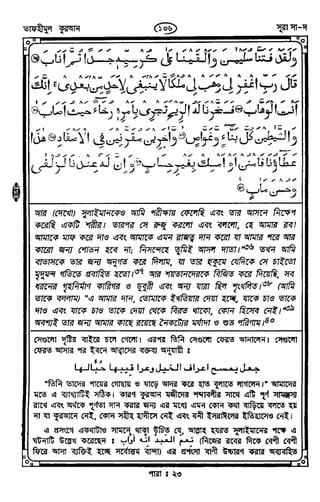 তাফহীমুল কুরআন
১০৬
সূরা সা-দ
وَلَقَدْ فَتَنَّا سُلَيْمٰنَ وَأَلْقَيْنَا عَلٰى كُرْسِيِّهٖ جَسَدًا ثُمَّ أَنَابَ ۝
قَالَ رَبِّ اغْفِرْ لِيْ وَهَبْ لِيْ مُلْكًا لَّا يَنْبَغِيْ لِأَحَدٍ مِّنْ بَعْدِيْ ۚ إِنَّكَ
أَنْتَ الْوَهَّابُ ۝ فَسَخَّرْنَا لَهُ الرِّيْحَ تَجْرِيْ بِأَمْرِهٖ رُخَاءً حَيْثُ أَصَابَ ۝
وَالشَّيٰطِيْنَ كُلَّ بَنَّاءٍ وَّغَوَّاصٍ ۝ وَّاٰخَرِيْنَ مُقَرَّنِيْنَ فِي الْأَصْفَادِ ۝ هٰذَا
عَطَاؤُنَا فَامْنُنْ أَوْ أَمْسِكْ بِغَيْرِ حِسَابٍ ۝ وَإِنَّ لَهٗ عِنْدَنَا لَزُلْفٰى
وَحُسْنَ مَاٰبٍ ۝
আর (দেখো) সুলাইমানকেও আমি পরীক্ষায় ফেলেছি এবং তার আসনে নিক্ষেপ
করেছি একটি শরীর। তারপর সে রুজু করলো এবং বললো, হে আমার রব!
আমাকে মাফ করে দাও এবং আমাকে এমন রাজত্ব দান করো যা আমার পরে আর
কারো জন্য শোভন হবে না; নিসন্দেহে তুমিই আসল দাতা।"৩৬ তখন আমি
বাতাসকে তার জন্য অনুগত করে দিলাম, যা তার হুকুমে যেদিকে সে চাইতো
মৃদুমন্দ গতিতে প্রবাহিত হতো।৩৭ আর শয়তানদেরকে বিজিত করে দিয়েছি, সব
ধরনের গৃহনির্মাণ কারিগর ও ডুবুরী এবং অন্য যারা ছিল শৃংখলিত।৩৮ (আমি
তাকে বললাম) "এ আমার দান, তোমাকে ইখতিয়ার দেয়া হচ্ছে, যাকে চাও তাকে
দাও এবং যাকে চাও তাকে দেয়া থেকে বিরত থাকো, কোন হিসেব নেই।"৩৯
অবশ্যই তার জন্য আমার কাছে রয়েছে নৈকট্যের মর্যাদা ও শুভ পরিণাম।৪০
সেগুলো দৃষ্টির বাইরে চলে গেলো। এরপর তিনি সেগুলো ফেরত আনালেন। সেগুলো
ফেরত আসার পর ইবনে আব্বাসের বক্তব্য অনুযায়ী :
جعل يمسح اعراف الخيل وعراقيبها حبا لها
"তিনি তাদের ঘাড়ে ও পায়ের গোছায় আদর করে হাত বুলাতে লাগলেন।" আমাদের
মতে এ ব্যাখ্যাটিই সঠিক। কারণ কুরআন মজীদের শব্দাবলীর সাথে এটি পূর্ণ সামঞ্জস্য
রাখে এবং অর্থকে পূর্ণতা দান করার জন্য এর মধ্যে এমন কোন কথা বাড়িয়ে বলতে হয়
না যা কুরআনে নেই, কোন সহীহ হাদীসে নেই এবং বনী ইসরাঈলের ইতিহাসেও নেই।
এ প্রসংগে একথাটাও সামনে থাকা উচিত যে, আল্লাহ হযরত সুলাইমানের পক্ষে এ
ঘটনাটি উল্লেখ করেছেন : نعم العبد انه اواب (নিজের রবের দিকে বেশী বেশী
ফিরে আসা ব্যক্তিই হচ্ছে সর্বোত্তম বান্দা) এর প্রশংসা বাণী উচ্চারণ করার অব্যবহিত
পারা : ২৩